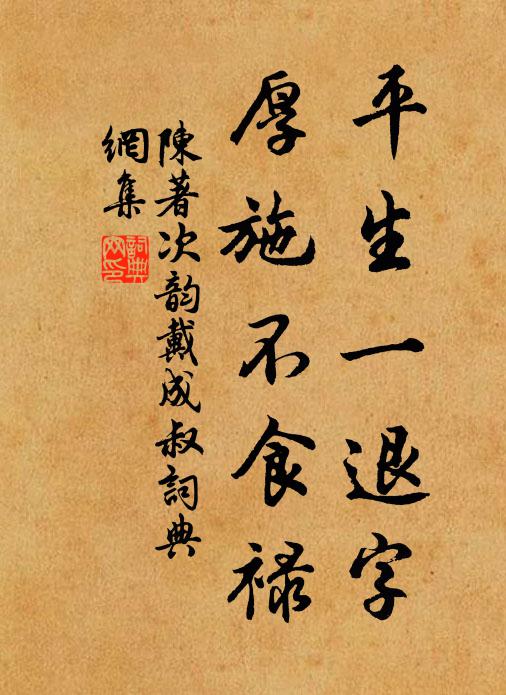 平生一退字
厚施不食禄
陳著次韵戴成叔詞典
網集
詞典
网印